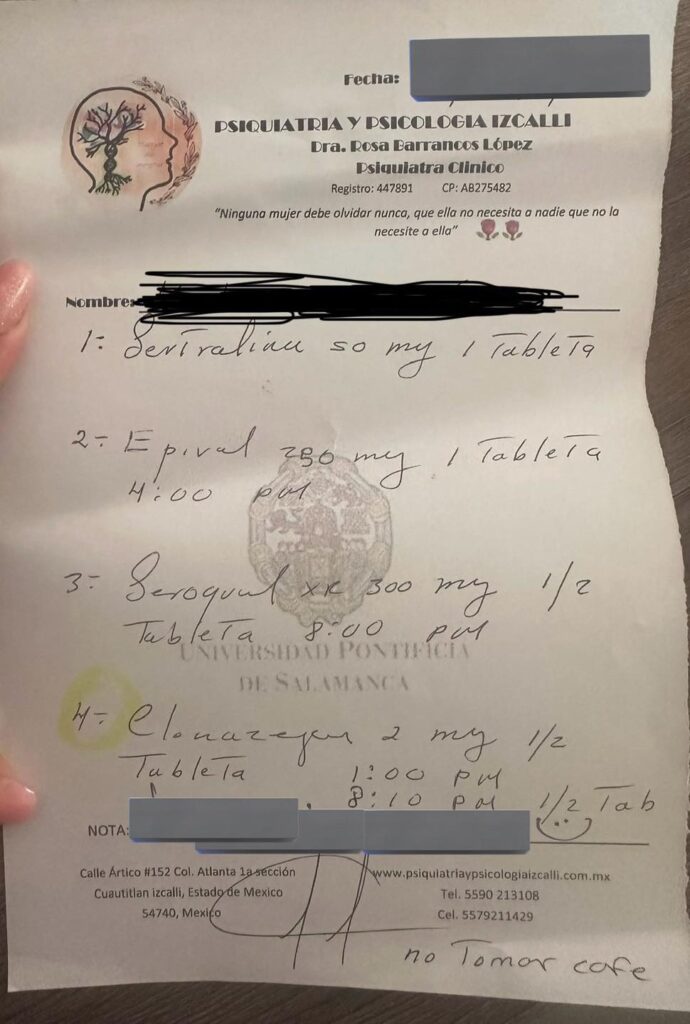 Fecha:
PSIQUIATRIA Y PSICOLOGIA IZCALLI
Dra. Rosa Barrancos López
Psiquiatra Clinico
Registro: 447891 CP: AB275482
“Ninguna mujer debe olvidar nunca, que ella no necesita a nadie que no la
necesite a ella”
Nombre:
1= Sertralina 50 mg 1 Tableta
2= Epival 250 mg 1 Tableta
4:00 pm
3= Seroquel XR 300 mg 1/2
Tableta 8:00 pm
UNIVERSIDAD PONTIFICIA
DE SALAMANCA
4= Clonazepam 2 mg 1/2
Tableta 1:00 pm
8:10 pm 1/2 Tab
NOTA:
Calle Ártico #152 Col. Atlanta 1a sección
Cuautitlan izcalli, Estado de Mexico
54740, Mexico
www.psiquiatriaypsicologiaizcalli.com.mx
Tel. 5590 213108
Cel. 5579211429
no Tomar cafe